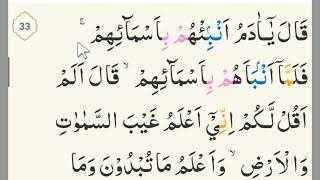 33
قَالَ يٰۤاٰدَمُ اَنْۢبِئْهُمْ بِاَسْمَآئِهِمْ ۚ
فَلَمَّاۤ اَنْۢبَاَهُمْ بِاَسْمَآئِهِمْ ۙ قَالَ اَلَمْ
اَقُلْ لَّكُمْ اِنِّيْۤ اَعْلَمُ غَيْبَ السَّمٰوٰتِ
وَالْاَرْضِ ۙ وَاَعْلَمُ مَا تُبْدُوْنَ وَمَا